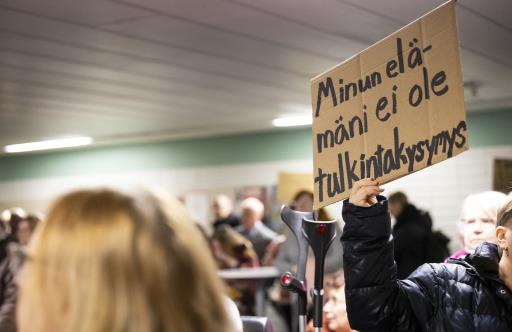 Minun elä-
mäni ei ole
tulkintakysymys